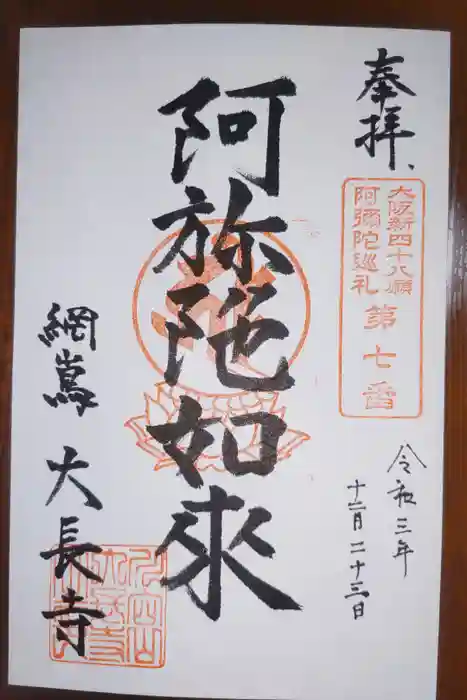 奉拝、
大阪新四十八願
阿彌陀巡礼 第七番
令和三年
十二月二十三日
阿弥陀如來
網嶌 大長寺